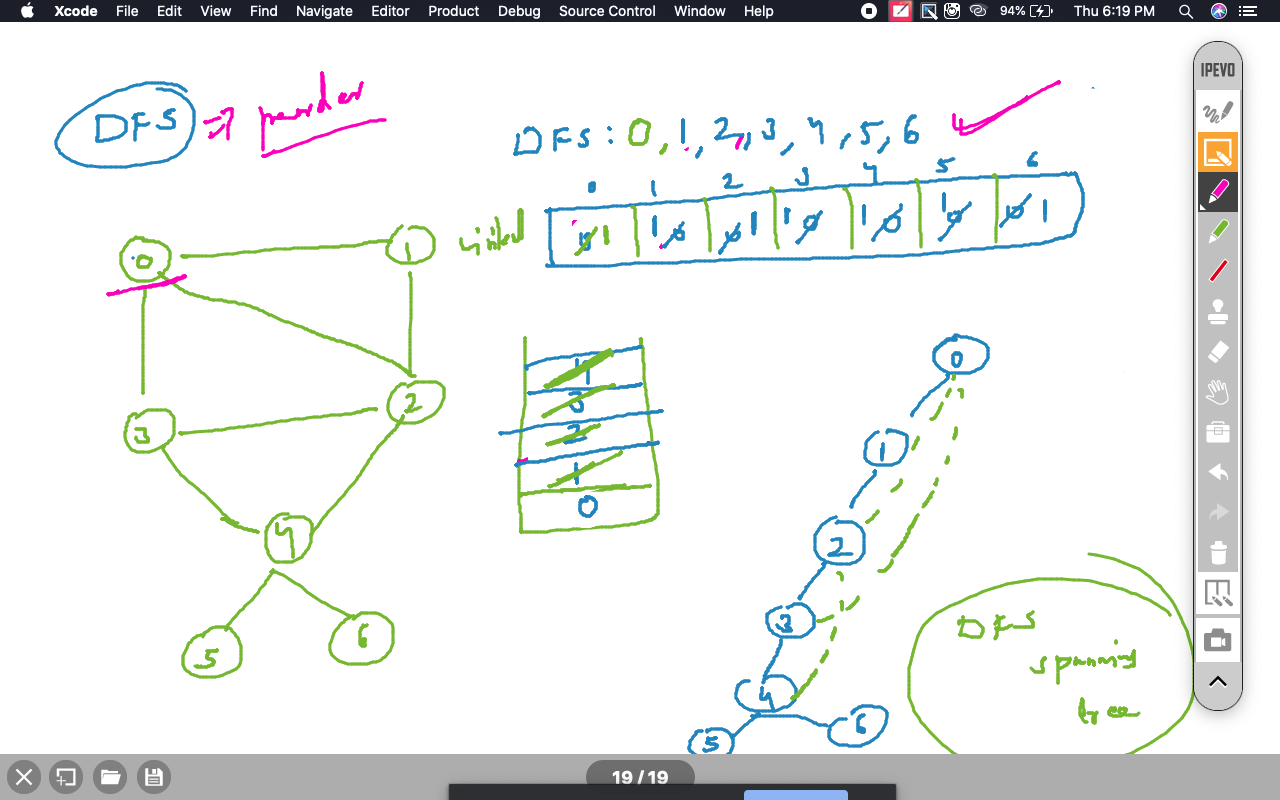 Xcode File Edit View Find Navigate Editor Product Debug Source Control Window Help 94% Thu 6:19 PM
IPEVO
DFS ⇒
DFS : 0, 1, 2, 3, 4, 5, 6
0 1 2 3 4 5 6
visited 0 1 1 0 0 1 1 0 1 0 1 0 0 1
0 1
3 2
4
5 6
4
3
2
1
0
0
1
2
3
4
5 6
DFS
spanning
tree
19 / 19